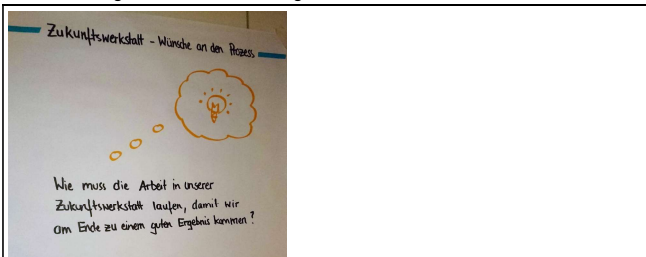 Zukunftswerkstatt - Wünsche an den Prozess
Wie muss die Arbeit in unserer
Zukunftswerkstatt laufen, damit wir
am Ende zu einem guten Ergebnis kommen?